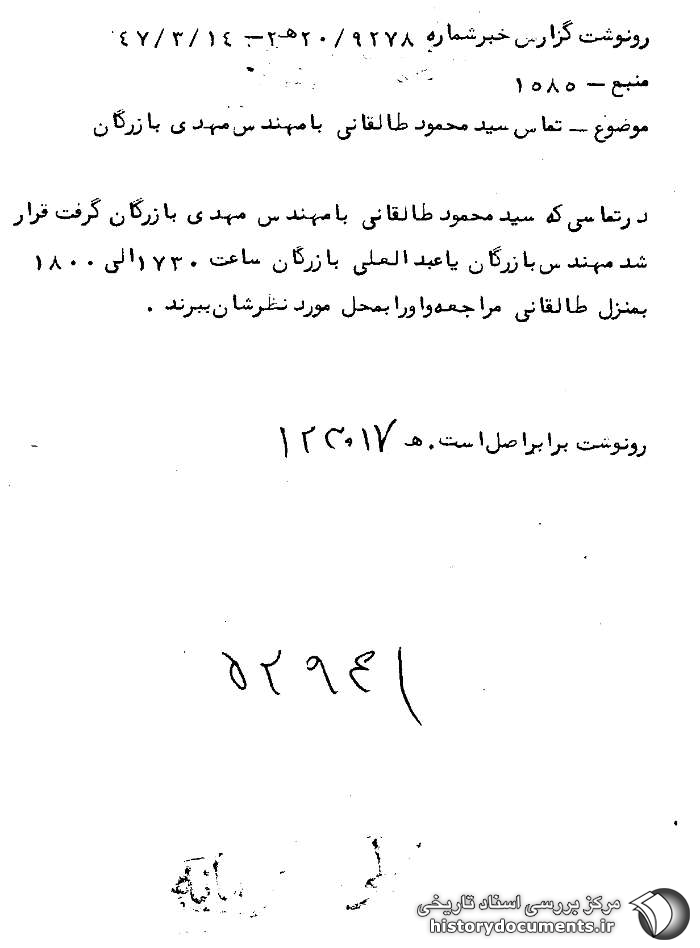 رونوشت گزارش خبر شماره ۹۲۷۸/ ۲۰هـ۲ – ۴۷/۳/۱۴
منبع – ۱۵۸۵
موضوع – تماس سید محمود طالقانی با مهندس مهدی بازرگان
در تماسی که سید محمود طالقانی با مهندس مهدی بازرگان گرفت قرار
شد مهندس بازرگان یا عبدالعلی بازرگان ساعت ۱۷۳۰ الی ۱۸۰۰
بمنزل طالقانی مراجعه و او را بمحل مورد نظرشان ببرند .
رونوشت برابر اصل است . هـ
۵۲۹۴۱
مرکز بررسی اسناد تاریخی
historydocuments.ir